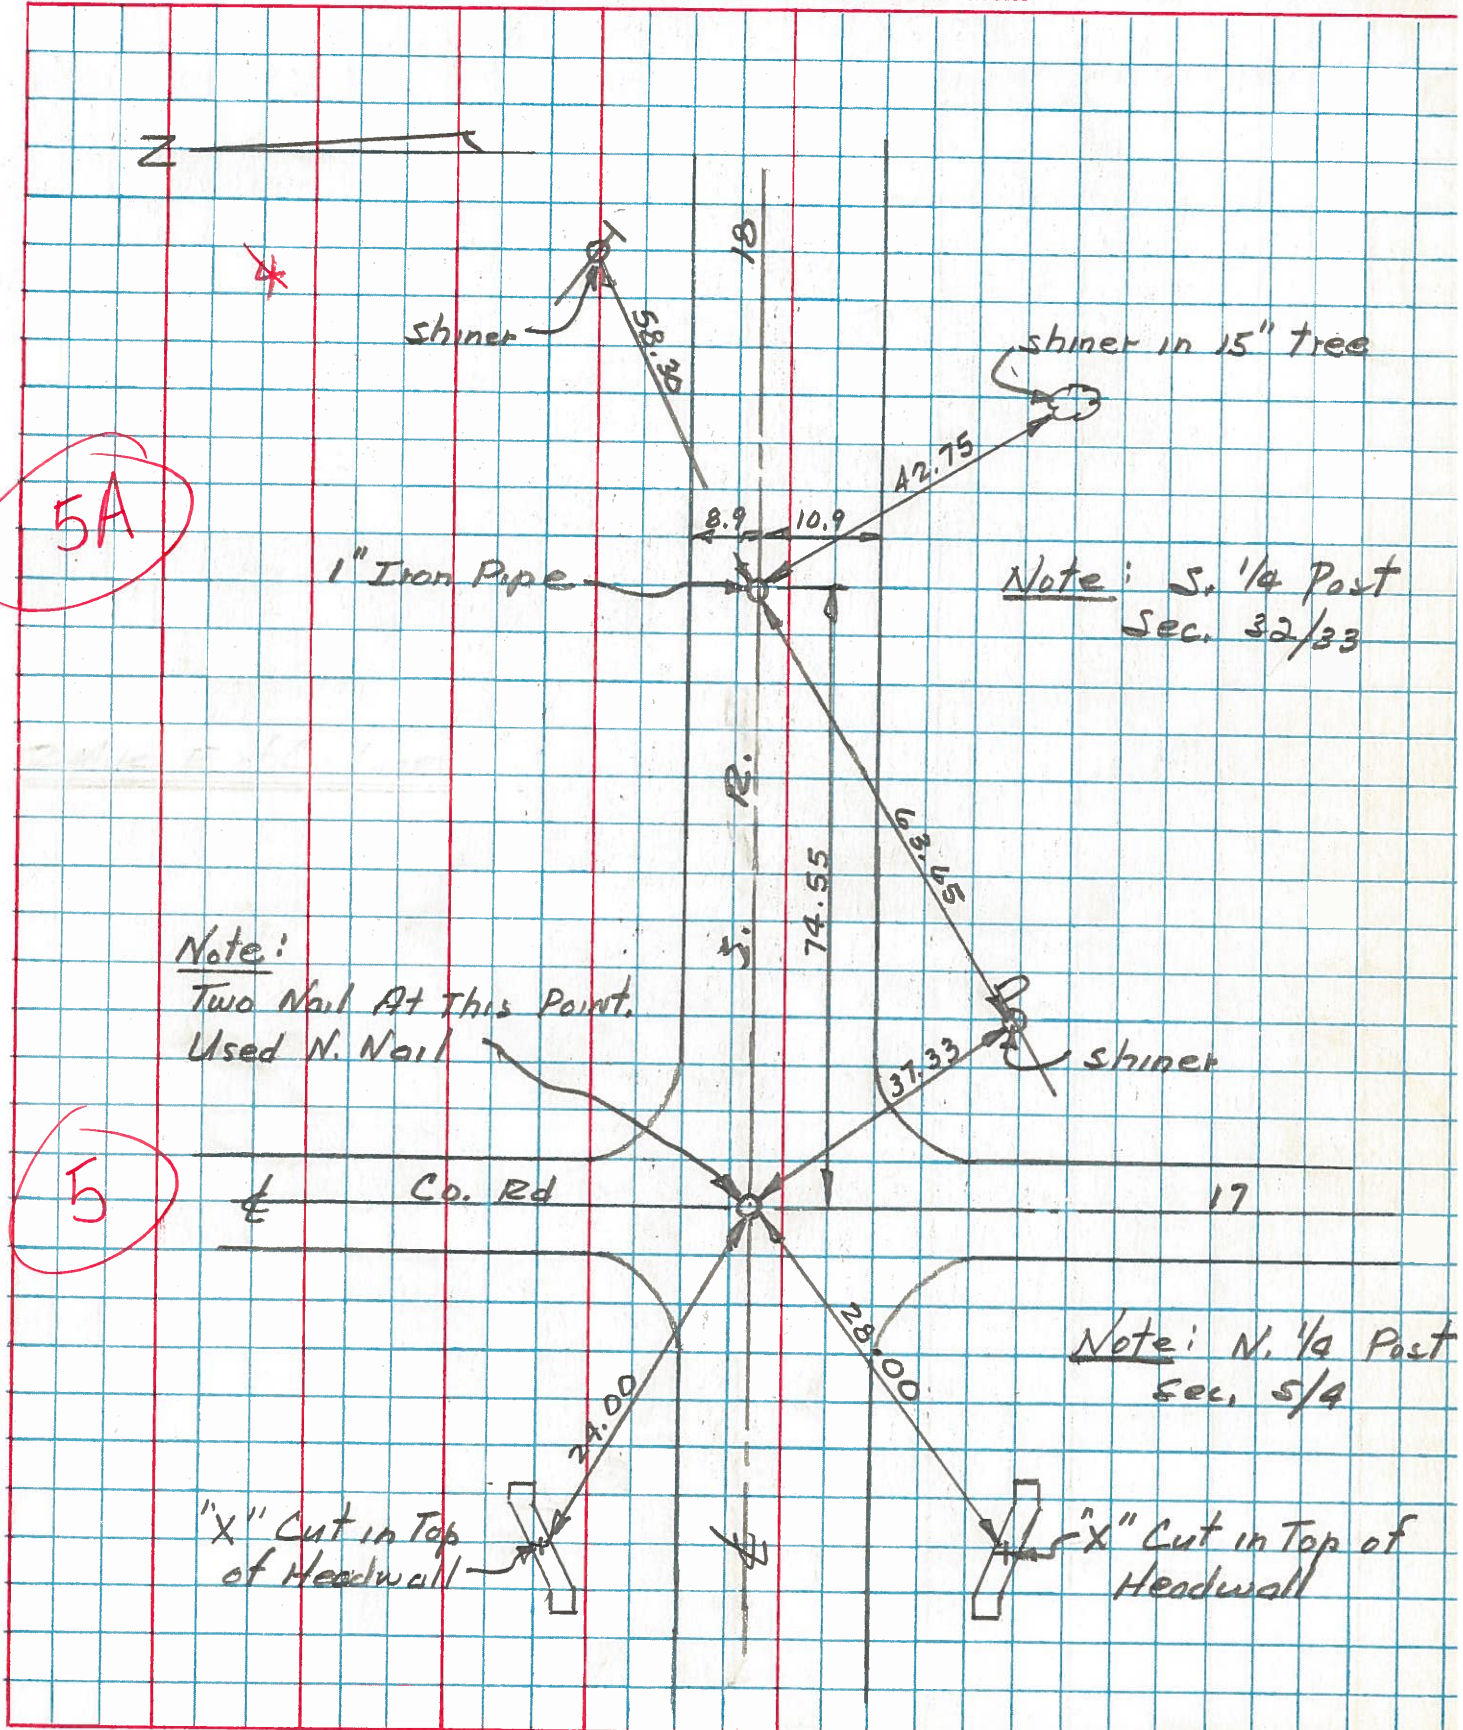 N
4
18
shiner
58.30
shiner in 15" tree
42.75
5A
8.9
10.9
1" Iron Pipe
Note: S. 1/4 Post
Sec. 32/33
S. R.
63.65
74.55
Note:
Two Nail At This Point.
Used N. Nail
37.33
shiner
5
℄
Co. Rd
17
28.00
Note: N. 1/4 Post
Sec. 5/4
24.00
"X" Cut in Top
of Headwall
℄
"X" Cut in Top of
Headwall